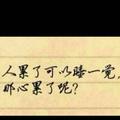 人累了可以睡一觉，
那心累了呢？